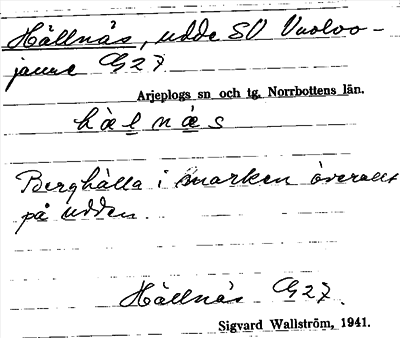 Hällnäs, udde SO Vuolvo-
jaure G27.
Arjeplogs sn och tg. Norrbottens län.
hàl nás
Berghälla i marken överallt
på udden.
Hällnäs G27.
Sigvard Wallström, 1941.